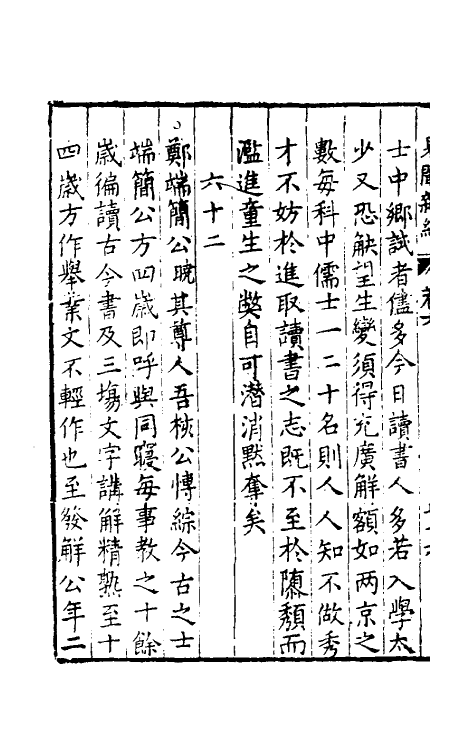 士中鄉試者儘多今日讀書人多若入學太
少又恐觖望生變須得充廣解額如两京之
數每科中儒士一二十名則人人知不做秀
才不妨於進取讀書之志既不至於隳頽而
濫進童生之獘自可潜消默奪矣
六十二
鄭端簡公曉其尊人吾核公愽綜今古之士
端簡公方四歲即呼與同寢每事教之十餘
歲徧讀古今書及三塲文字講解精熟至十
四歲方作舉業文不輕作也至發解公年二